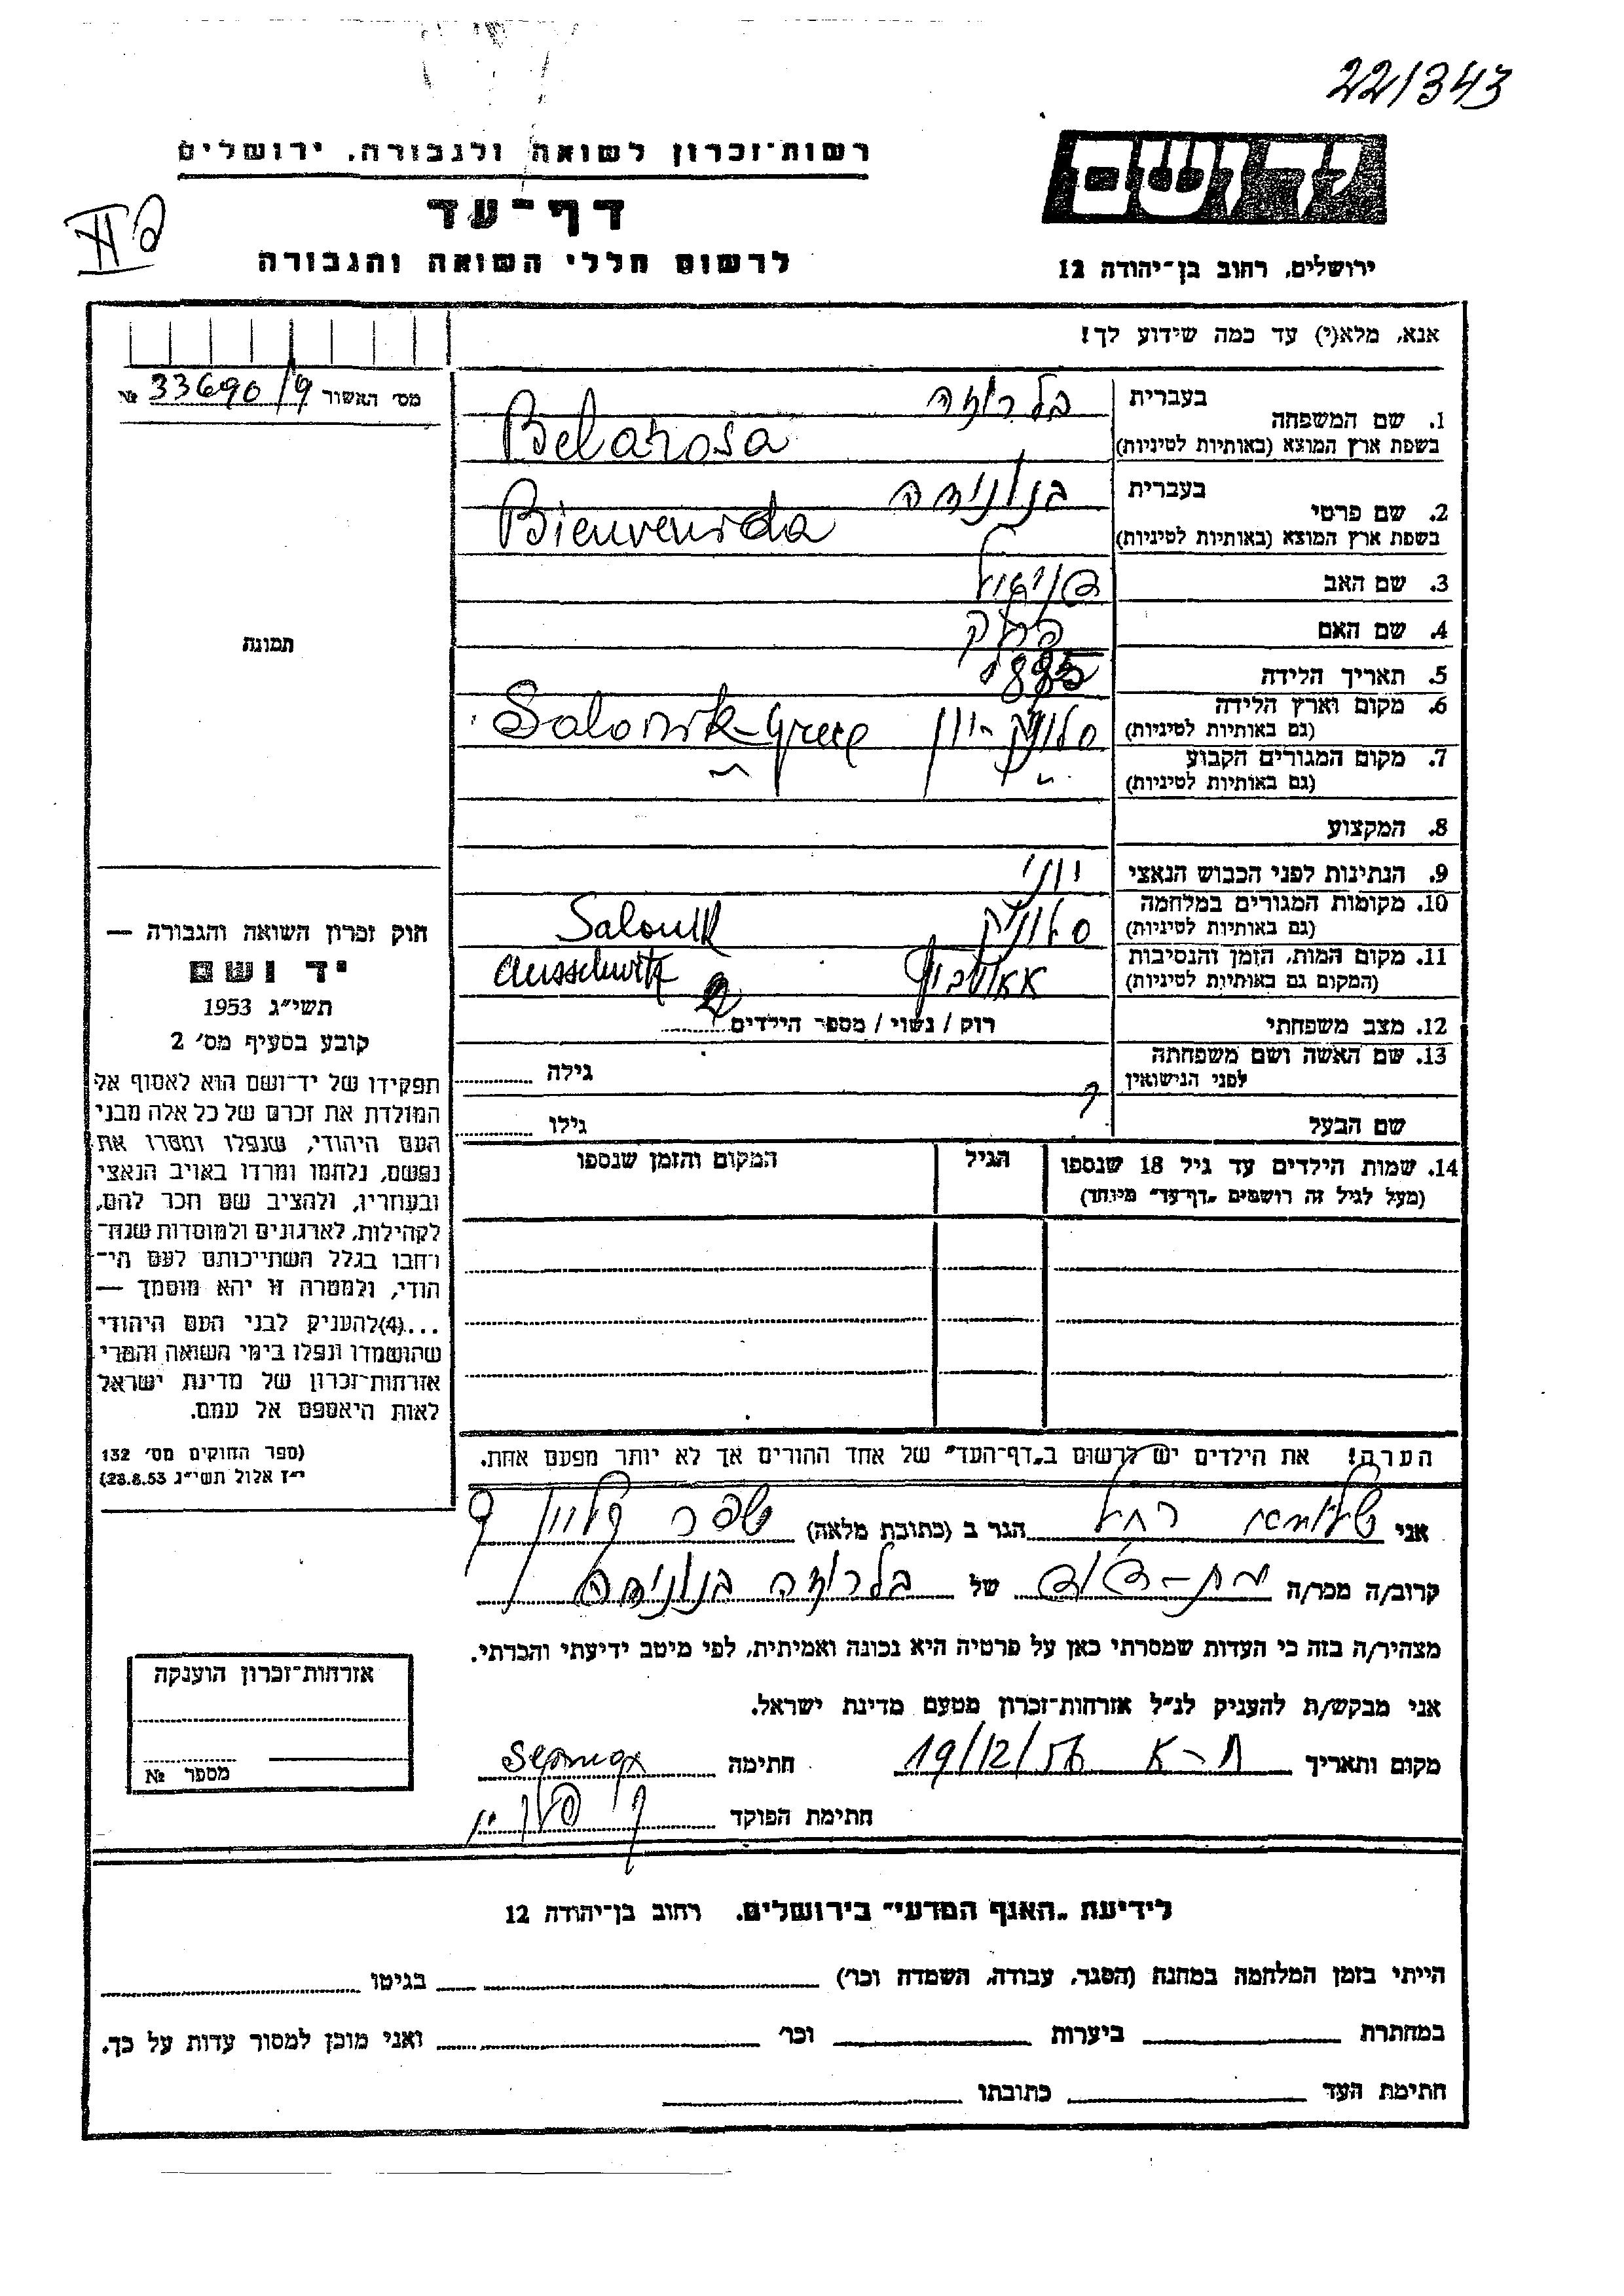 22/343
רשות־זכרון לשואה ולגבורה, ירושלים
ידושם
דף־עד
לרשום חללי השואה והגבורה
ירושלים, רחוב בן־יהודה 12
אנא, מלא(י) עד כמה שידוע לך!
מס' האשור 33690/9 №
תמונה
1. שם המשפחה
בעברית
בשפת ארץ המוצא (באותיות לטיניות)
בלרוזה
Belarosa
2. שם פרטי
בעברית
בשפת ארץ המוצא (באותיות לטיניות)
בנונידה
Bienvenida
3. שם האב
4. שם האם
5. תאריך הלידה
6. מקום וארץ הלידה
(גם באותיות לטיניות)
סלוניק - יון Salonik-Grece
7. מקום המגורים הקבוע
(גם באותיות לטיניות)
8. המקצוע
9. הנתינות לפני הכבוש הנאצי יווני
10. מקומות המגורים במלחמה
(גם באותיות לטיניות)
סלוניק Salonik
11. מקום המות, הזמן והנסיבות
(המקום גם באותיות לטיניות)
Ausschwitz
12. מצב משפחתי רוק / נשוי / מספר הילדים
13. שם האשה ושם משפחתה
לפני הנישואין
גילה
שם הבעל גילו
14. שמות הילדים עד גיל 18 שנספו הגיל המקום והזמן שנספו
(מעל לגיל זה רושמים „דף־עד" מיוחד)
הערה! את הילדים יש לרשום ב„דף־העד" של אחד ההורים אך לא יותר מפעם אחת.
חוק זכרון השואה והגבורה —
יד ושם
תשי"ג 1953
קובע בסעיף מס' 2
תפקידו של יד־ושם הוא לאסוף אל
המולדת את זכרם של כל אלה מבני
העם היהודי, שנפלו ומסרו את
נפשם, נלחמו ומרדו באויב הנאצי
ובעוזריו, ולהציב שם וזכר להם,
לקהילות, לארגונים ולמוסדות שנח־
רחבו בגלל השתייכותם לעם הי־
הודי, ולמטרה זו יהא מוסמך —
...(4)להעניק לבני העם היהודי
שהושמדו ונפלו בימי השואה והמרי
אזרחות־זכרון של מדינת ישראל
לאות היאספם אל עמם.
(ספר החוקים מס' 132
י"ז אלול תשי"ג 28.8.53)
אני רחל הגר ב (כתובת מלאה)
קרוב/ה מכר/ה בת-דוד של בלרוזה בנונידה
מצהיר/ה בזה כי העדות שמסרתי כאן על פרטיה היא נכונה ואמיתית, לפי מיטב ידיעתי והכרתי.
אני מבקש/ת להעניק לנ"ל אזרחות־זכרון מטעם מדינת ישראל.
מקום ותאריך ת-א 19/12/56 חתימה
חתימת הפוקד
אזרחות־זכרון הוענקה
מספר №
לידיעת „האגף המדעי" בירושלים, רחוב בן־יהודה 12
הייתי בזמן המלחמה במחנה (הסגר, עבודה, השמדה וכו') בגיטו
במחתרת ביערות וכו' ואני מוכן למסור עדות על כך.
חתימת העד כתובתו